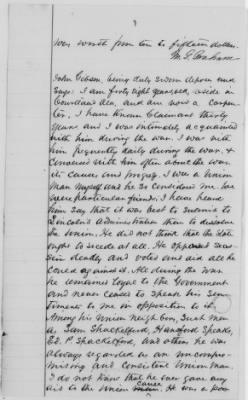 was worth from ten to fifteen dollars.
M. L. Graham
John Gibson, being duly sworn deposes and
says: I am forty eight years old, reside in
Courtland Ala, and am now a carpen
ter. I have known Claimant thirty
years and I was intimately acquainted
with him during the war. I was with
him frequently daily during the war, &
conversed with him often about the war
its cause and progress. I was a Union
man myself and he so considered me. We
were particular friends. I have heard
him say that it was best to submit to
Lincoln's Administration than to dissolve
the Union. He did not think that the States
ought to secede at all. He opposed seces-
sion deadly and voted and did all he
could against it. All during the war
he remained loyal to the Government
and never ceased to speak his sen
timents to me in opposition to it.
Among his Union neighbors, such men
as Sam Shackelford, Hansford Speake,
Ed. P. Shackelford, and others, he was
always regarded as an uncompro-
missing and consistent Union man.
I do not know that he ever gave any
aid to the Union cause. He was a poor